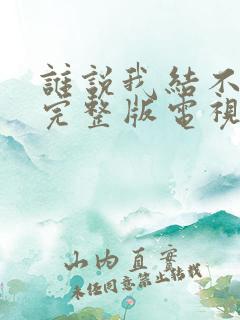 誰說我結不
完整版電視
山内直實
未任同意禁止轉載